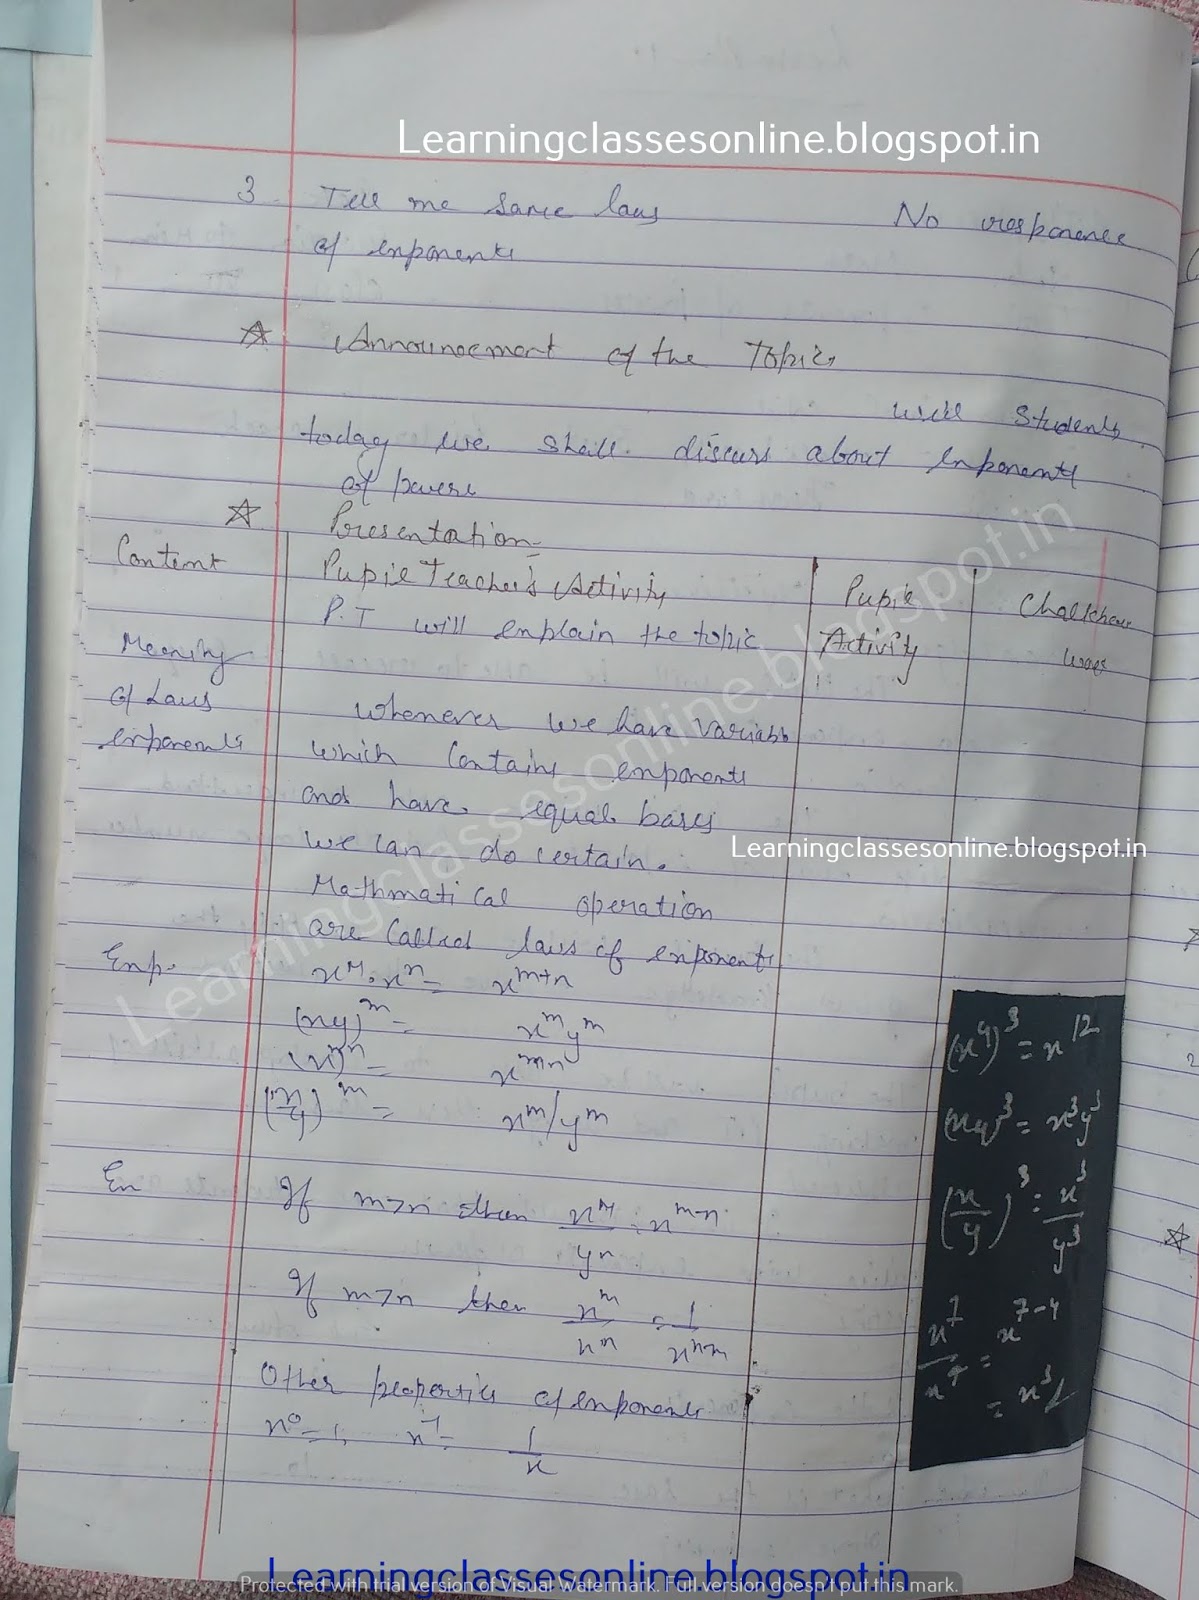 Learningclassesonline.blogspot.in
3. Tell me some laws No response
of exponents
☆ Announcement of the Topic
well students
today we shall discuss about exponents
of powers
☆ Presentation=
Content Pupil Teacher's Activity Pupil
P.T will explain the topic Activity
Meaning
of Laws
exponents
whenever we have variabls
which Contains exponents
and have equal bases
we can do certain.
Learningclassesonline.blogspot.in
Mathmatical operation
are Called laws of exponents
Exp.
x^m . x^n = x^m+n
(xy)^m = x^m y^m
(x^m)^n = x^mn
(x/y)^m = x^m/y^m
Ex If m>n then x^m/y^n = x^m-n
If m>n then x^m/x^n = 1/x^n-m
Other properties of exponents
x^0 = 1, x^-1 = 1/x
(x^4)^3 = x^12
(xy)^3 = x^3y^3
(x/y)^3 = x^3/y^3
= x^7-4
= x^3
Learningclassesonline.blogspot.in
Learningclassesonline.blogspot.in
Protected with trial version of Visual Watermark. Full version doesn't put this mark.